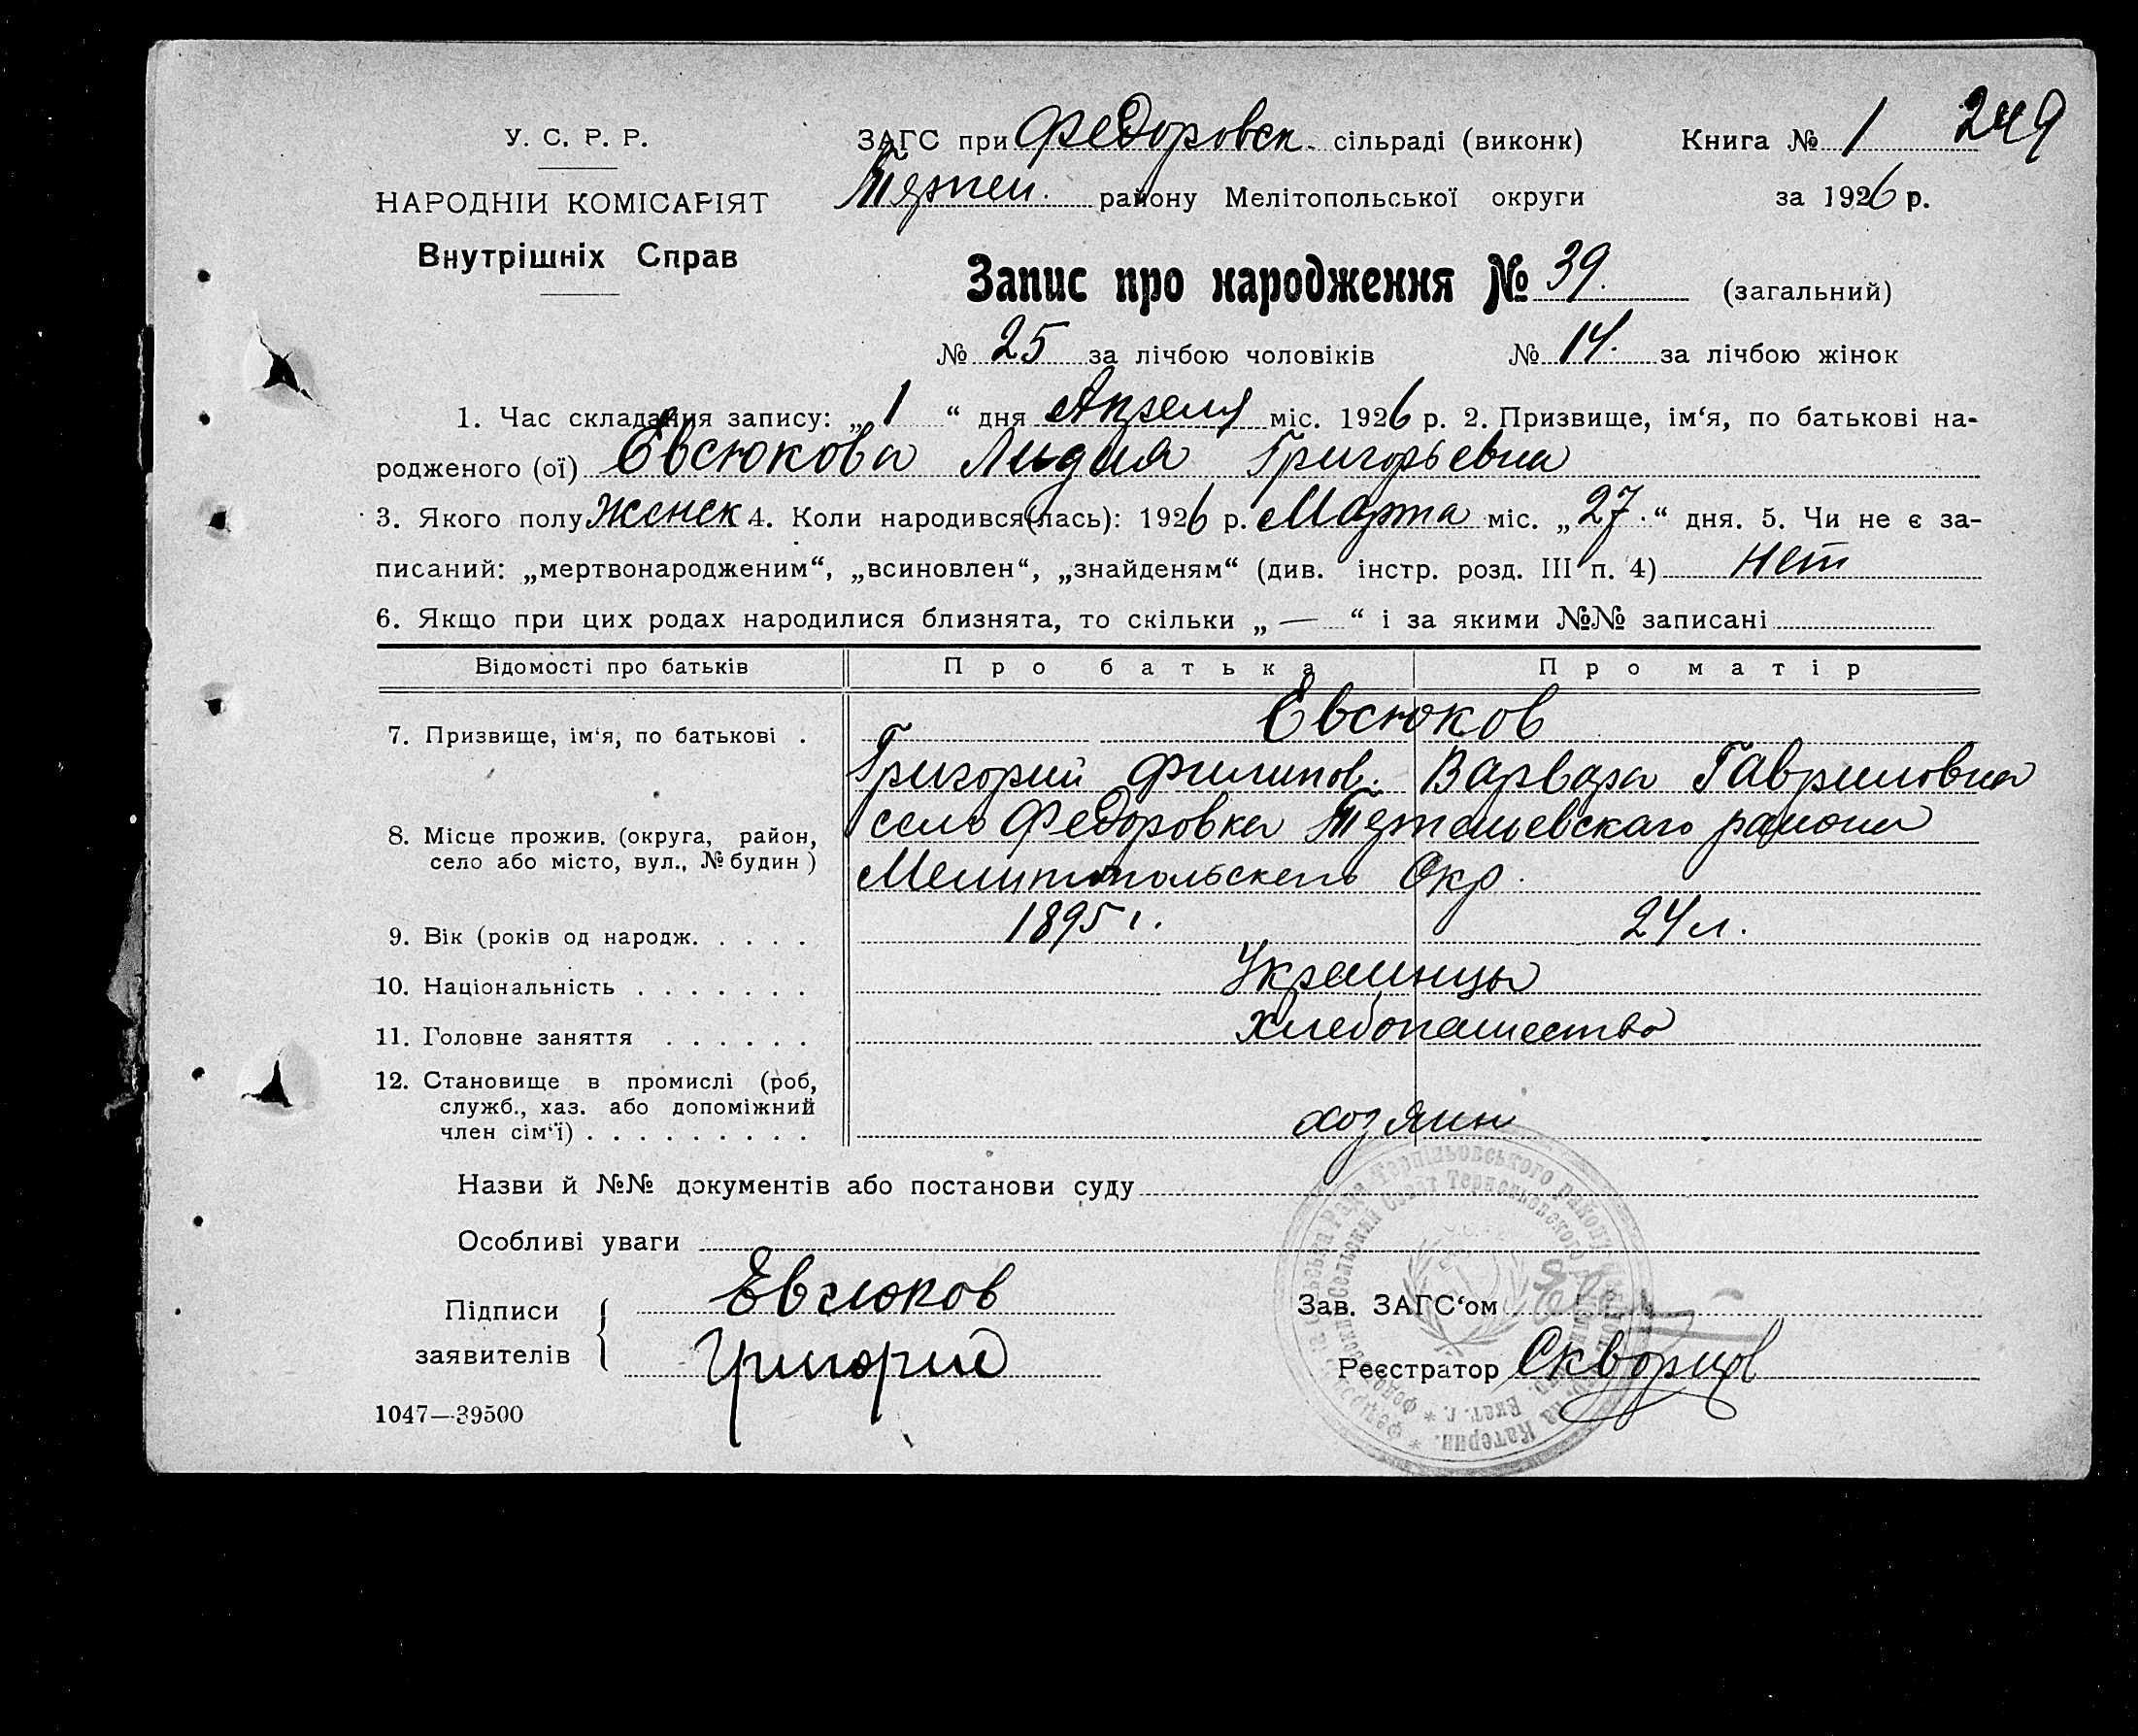 249
У. С. Р. Р.
НАРОДНІЙ КОМІСАРІЯТ
Внутрішніх Справ
ЗАГС при Федоровск. сільраді (виконк)
Терпен. району Мелітопольської округи
Книга № 1
за 1926 р.
Запис про народження № 39. (загальний)
№ 25 за лічбою чоловіків № 14. за лічбою жінок
1. Час складання запису: „1“ дня Апреля міс. 1926 р. 2. Призвище, ім‘я, по батькові на-
родженого (ої) Евсюкова Лидия Григорьевна
3. Якого полу Женск 4. Коли народився(лась): 1926 р. Марта міс. „27.“ дня. 5. Чи не є за-
писаний: „мертвонародженим“, „всиновлен“, „знайденям“ (див. інстр. розд. III п. 4) нет
6. Якщо при цих родах народилися близнята, то скільки „ — “ і за якими №№ записані
Відомості про батьків Про батька Про матір
7. Призвище, ім‘я, по батькові . Евсюков
Григорий Филипов. Варвара Гавриловна
8. Місце прожив. (округа, район,
село або місто, вул., № будин )
село Федоровка Терпеньевскаго района
Мелитопольского Окр.
9. Вік (років од народж. . . . . 1895 г. 24 л.
10. Національність . . . . . . . Украинцы
11. Головне заняття . . . . . . Хлебопашество
12. Становище в промислі (роб,
служб., хаз. або допоміжний
член сім‘ї) . . . . . . . . . хозяин
Назви й №№ документів або постанови суду
Особливі уваги
Підписи
заявителів
Евсюков
Григорий
Зав. ЗАГС‘ом
Реєстратор Скворцов
1047—39500
Сільська Рада Терпіньовського району
Сельский Совет Терпеньевского
Катерин.
Екат. г.